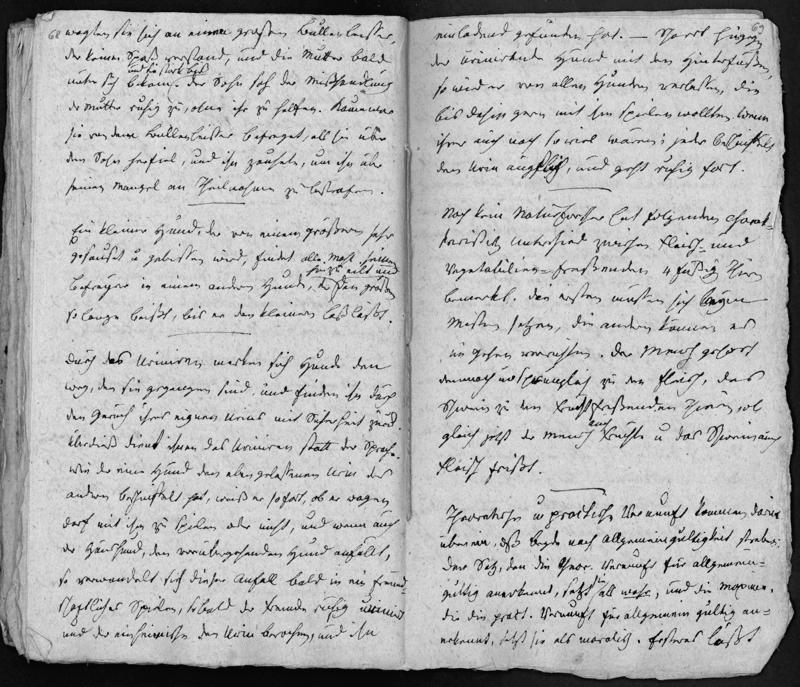 68
wagten sie sich an einen großen Bullenbeisser,
der keinen Spaß verstand, und die Mutter bald
unter sich bekam. der Sohn sah der Mißhandlung
der Mutter ruhig zu, ohne ihr zu helfen. Kaum war
sie von dem Bullenbeisser befreyet, als sie über
den Sohn herfiel, und ihn zauste, um ihn über
seinen Mangel an Theilnahme zu bestrafen.
Ein kleiner Hund, der von einem größern sehr
gezaust u gebissen wird, findet alle Mahl seinen
Befreyer in einem andern Hunde, der den größern
so lange beißt, bis er den kleinern losläßt.
Durch das Uriniren merken sich Hunde den
Weg, den sie gegangen sind, und finden ihn durch
den Geruch ihres eignen Urins mit Sicherheit zurück.
Überdieß dient ihnen das Uriniren statt der Sprache.
Wie der eine Hund den eben gelassenen Urin des
andern beschnüffelt hat, weiß er sofort, ob er wagen
darf mit ihm zu spielen oder nicht, und wenn auch
der Haushund, den vorübergehenden Hund anfällt,
so verwandelt sich dieser Anfall bald in ein freund-
schaftliches Spielen, sobald der Fremde ruhig urinirt
und der einheimische den Urin berochen, und ihn
69
einladend gefunden hat. — Scharrt hingegen
der urinirende Hund mit den Hinterfüßen,
so wird er von allen Hunden verlassen, die
bis dahin gern mit ihm spielen wollten. Wenn
ihrer auch noch so viel wären; jeder beschnüffelt
den Urin ängstlich, und geht ruhig fort.
Noch kein Naturforscher hat folgenden charak-
teristischen Unterschied zwischen Fleisch- und
Vegetabilien-fressenden 4 füßigen Thieren
bemerkt. die ersten müssen sich beym
Misten setzen, die andern können es
im Gehen verrichten. Der Mensch gehört
demnach ursprünglich zu den Fleisch, das
Schwein zu den Frucht fressenden Thieren, ob
gleich jetzt der Mensch auch Früchte u das Schwein auch
Fleisch frißt.
Theoretische u practische Vernunft kommen darin
überein, daß beyde nach Allgemeingültigkeit streben.
Der Satz, den die theor. Vernunft für allgemein-
gültig anerkennt, setzt sie als wahr, und die Maxime,
die die pract. Vernunft für allgemein gültig an-
erkennt, setzt sie als moralisch. Ersteres läßt